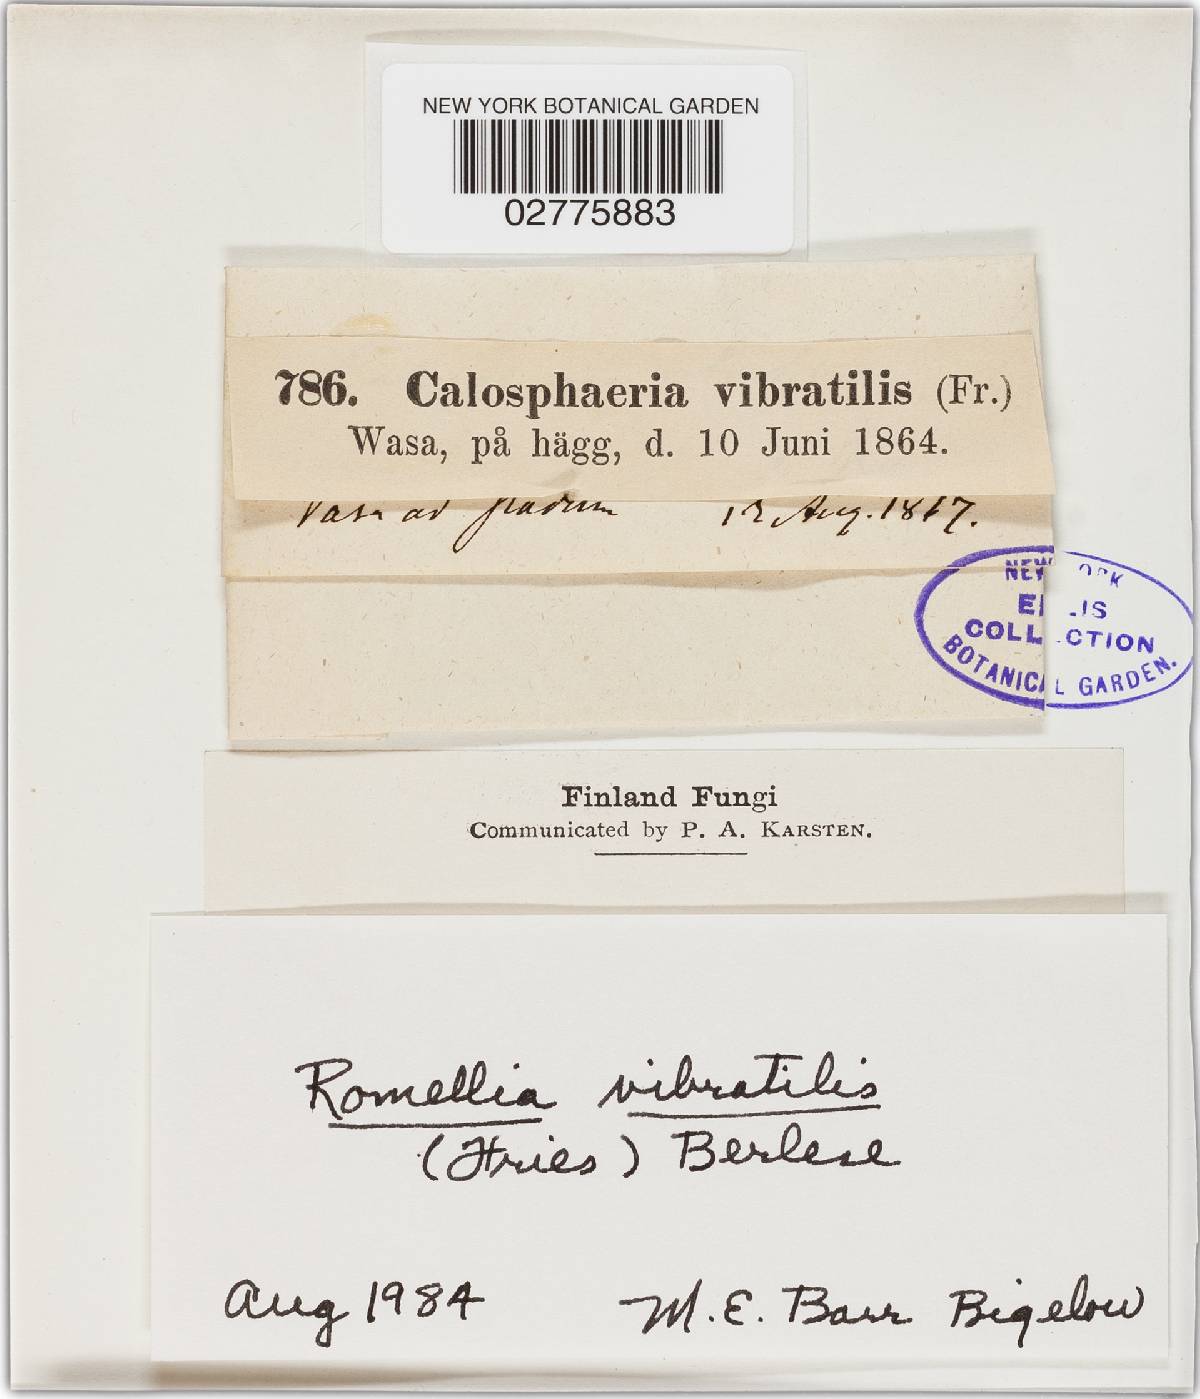 NEW YORK BOTANICAL GARDEN
02775883
786. Calosphaeria vibratilis (Fr.)
Wasa, på hägg, d. 10 Juni 1864.
Vasa ad padum 12 Aug. 1867.
NEW YORK
ELLIS
COLLECTION
BOTANICAL GARDEN.
Finland Fungi
Communicated by P. A. KARSTEN.
Romellia vibratilis
(Fries) Berlese
Aug 1984 M. E. Barr Bigelow